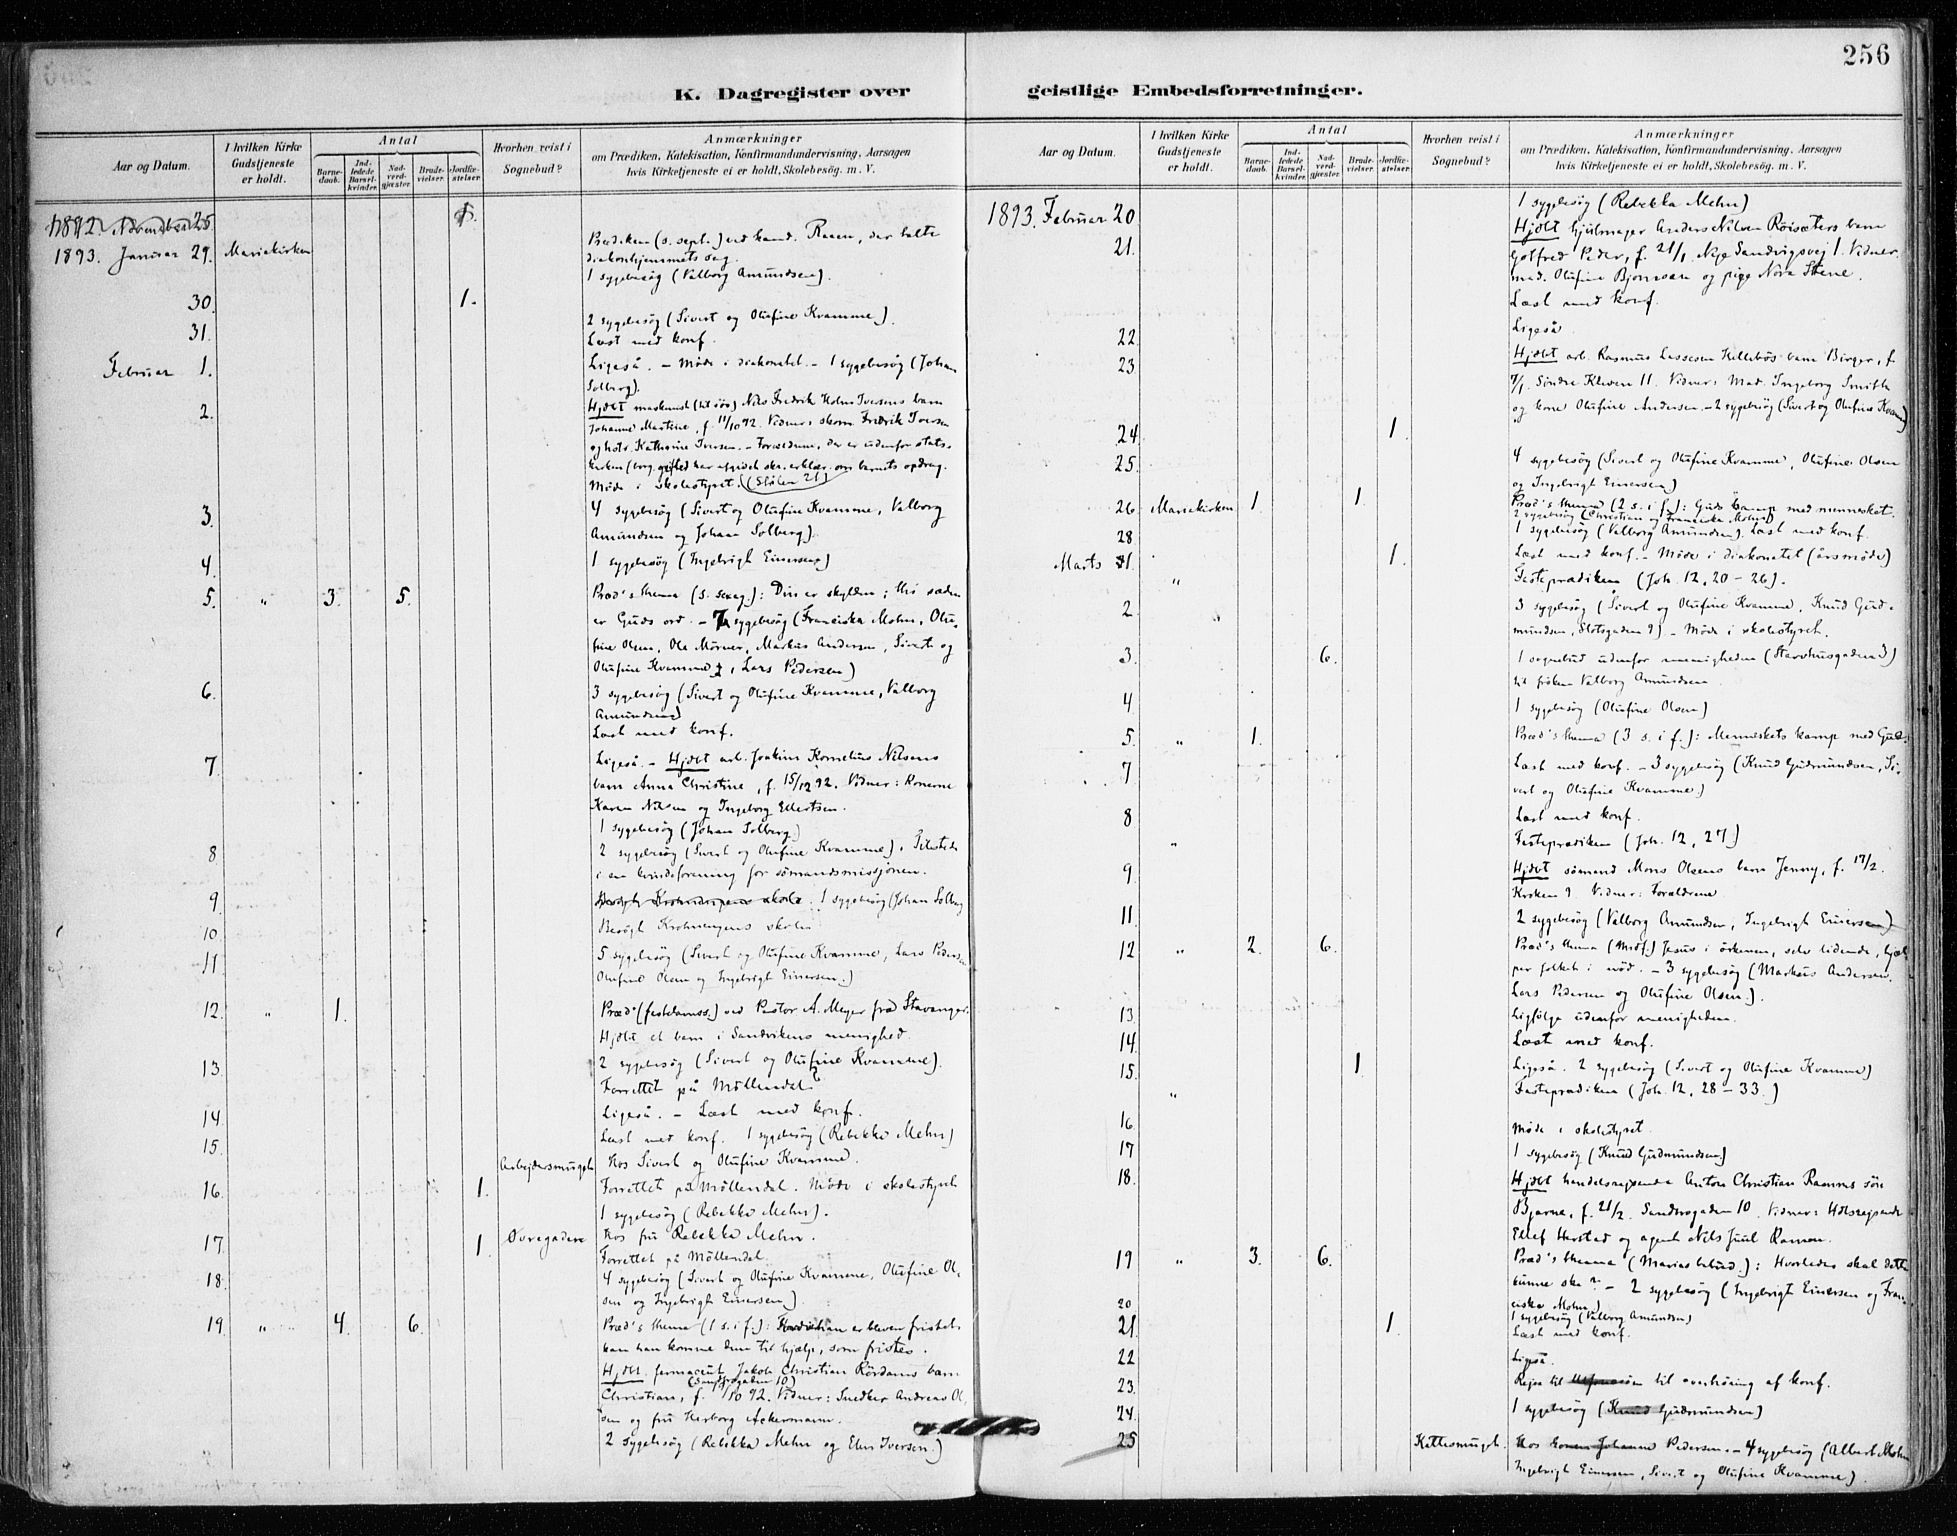 256
K. Dagregister over geistlige Embedsforretninger.
Aar og Datum.
I hvilken Kirke Gudstjeneste er holdt.
Antal
Barne-daab.
Ind-ledede Barsel-kvinder.
Nad-verd-gjæster
Brude-vielser.
Jordfæ-stelser.
Hvorhen reist i Sognebud?
Anmærkninger
om Prædiken, Katekisation, Konfirmandundervisning, Aarsagen
hvis Kirketjeneste ei er holdt, Skolebesøg. m. V.
1893. Januar 29. Mariekirken
Prædiken (s. sept.) ved kand. der holdt
diakonhjemmets sag.
1 sygebesøg (Valborg Amundsen).
30. 1.
2 sygebesøg (Sivert og Olufine Kvamme).
31. Læst med konf.
Februar 1. Ligeså. – Møde i diakonatet. – 1 sygebesøg (Johan
Solberg).
2. Hjdbt maskinist (til søs) Nils Fredrik Holm Iversens barn
Johanne Martine, f. 11/10 92. Vidner: skom. Fredrik Iversen
og Kathrine Iversen. – Forældrene, der er udenfor stats-
kirken (borg. giftet har afgivet skr. erklær. om barnets opdrag.
Møde i skolestyret. (Stølen 21)
3. 4 sygebesøg (Sivert og Olufine Kvamme, Valborg
Amundsen og Johan Solberg).
4. 1 sygebesøg (Ingebrigt Einersen)
5. " 3. 5. Præd's thema (s. sexag.): Din er skylden; thi sæden
er Guds ord. – 7 sygebesøg (Franciska Mohn, Olu-
fine Olsen, Ole Mörner, Markus Andersen, Sivert og
Olufine Kvamme, Lars Pedersen)
6. 3 sygebesøg (Sivert og Olufine Kvamme, Valborg
Amundsen)
Læst med konf.
7. Ligeså. – Hjdbt arb. Joakim Kornelius Nilsens
barn Anna Christine, f. 15/12 92. Vidner: Konerne
Karen Nilsen og Ingeborg Ellertsen.
1 sygebesøg (Johan Solberg.)
8. 2 sygebesøg (Sivert og Olufine Kvamme).
i en kvindeforening for sømandsmissjonen.
9. 1 sygebesøg (Johan Solberg
10. Besøgt Krohnengens skole
11. 5 sygebesøg (Sivert og Olufine Kvamme, Lars Pedersen
Olufine Olsen og Ingebrigt Einersen.)
12. " 1. Præd. (fastelavnss.) ved Pastor A. Meyer fra Stavanger.
Hjdbt et barn i Sandvikens menighed.
13. 2 sygebesøg (Sivert og Olufine Kvamme).
Forrettet på Möllendal.
14. Ligeså. – Læst med konf.
15. Læst med konf. 1 sygebesøg (Rebekka Mehn)
Arbejdersmuget Hos Sivert og Olufine Kvamme.
16. 1. Forrettet på Möllendal. Møde i skolestyret
1 sygebesøg (Rebekka Mehn).
17. 1. Øvregaden Hos fru Rebekka Mehn.
Forrettet på Möllendal.
18. 4 sygebesøg (Sivert og Olufine Kvamme, Olufine Ol-
sen og Ingebrigt Einersen)
19. " 4. 6. Præd's thema (1 s. i f.): er bleven fristet
kan han komme dem til hjælp, som fristes.
Hjdbt. farmaceut Jakob Christian Rördams barn
Christian, f. /10 92. Vidner: Snedker Andreas Ol-
sen og fru Herborg Ackermann.
2 sygebesøg (Rebekka Mehn og Iversen)
Aar og Datum.
I hvilken Kirke Gudstjeneste er holdt.
Antal
Barne-daab.
Ind-ledede Barsel-kvinder.
Nad-verd-gjæster
Brude-vielser.
Jordfæ-stelser.
Hvorhen reist i Sognebud?
Anmærkninger
om Prædiken, Katekisation, Konfirmandundervisning, Aarsagen
hvis Kirketjeneste ei er holdt, Skolebesøg. m. V.
1893. Februar 20 1 sygebesøg (Rebekka Mehn)
21. Hjdbt hjulmager Anders Nilsen Röisæters barn
Gotfred Peder, f. 21/1. Nye Sandvigsvej 1. Vidner
mad. Olufine Bjornsen og pige Nora Stene.
Læst med konf.
22 Ligeså.
23 Hjdbt arb. Rasmus Lassesen Hillebös barn Birger, f.
/1. Søndre Kleven 11. Vidner: Mad. Ingeborg Smith
og kone Olufine Andersen. – 2 sygebesøg (Sivert og Olufine Kvamme)
24. 1.
25. 4 sygebesøg (Sivert og Olufine Kvamme, Olufine Olsen
og Ingebrigt Einersen)
26. Mariekirken 1. 1. Præd's thema (2 s. i f.): Guds kamp med mennesket.
2 sygebesøg (Christian og Franciska Mohn)
28 1 sygebesøg (Valborg Amundsen). Læst med konf.
Marts 1. 1. Læst med konf. – Møde i diakonatet (årsmøde)
" Fasteprædiken (Joh. 12, 20 – 26).
2 3 sygebesøg (Sivert og Olufine Kvamme, Knud Gud-
mundsen, Slotsgaden 9). – Møde i skolestyret.
3. 6. 1 sognebud udenfor menigheden (Stavhusgaden 3)
til frøken Valborg Amundsen
4 1 sygebesøg (Olufine Olsen)
5. " 1. Præd's thema (3 s. i f.): Menneskets kamp med Gud.
7 Læst med konf. – 3 sygebesøg (Knud Gudmundsen, Si-
vert og Olufine Kvamme.)
8 Læst med konf.
" Fasteprædiken (Joh. 12, 27.)
9. Hjdbt sømand Mons Olsens barn Jenny, f. 17/2.
Vidner: Forældrene
11. 2 sygebesøg (Valborg Amundsen, Ingebrigt Einersen)
12 " 2. 6. Præd's thema (midf.) Jesus i ørkenen, selv lidende, hjæl-
per folket i nöd. – 3 sygebesøg (Markus Andersen.
Lars Pedersen og Olufine Olsen.).
13. Ligfølge udenfor menigheden.
14. Læst med konf.
15. 1 Ligeså. 2 sygebesøg (Sivert og Olufine Kvamme)
" Fasteprædiken (Joh. 12, 28 – 33.)
16. Møde i skolestyret.
17 1 sygebesøg (Knud Gudmundsen)
18. Hjdbt handelsrejsende Anton Christian Ramms søn
Bjarne, f. 21/2. Sandvigaden 10. Vidner:
Ellef Harstad og agent Nils Juul Ramm.
19 " 3. 6. Præd's thema (Marias bebud.): Hvorledes skal dette
kunne ske? – 2 sygebesøg (Ingebrigt Einersen og Fran-
ciska Mohn.)
20 1 sygebesøg (Valborg Amundsen)
21. 1 Læst med konf.
22 Ligeså.
23. Rejse til til overhöring af konf.
24. 1 sygebesøg (Knud Gudmundsen)
25 Kattesmuget. Hos Johanne Pedersen. – 4 sygebesøg (Albert Mohn
Ingebrigt Einersen, Sivert og Olufine Kvamme).